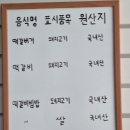 음식명 표시품목 원산지
떡갈버거 돼지고기 국내산
떡갈비 돼지고기 국내산
떡갈비빔밥 돼지고기 국내산
〃 쌀 국내산